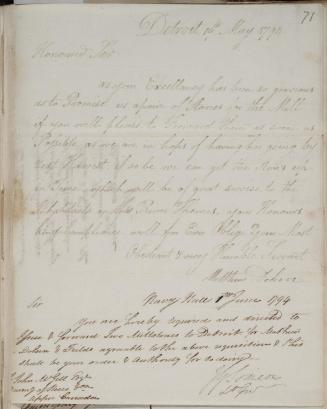 71
Detroit May 1794
Honoured Sir
as your Excellency has been so gracious
as to Promise us a pair of Stones in the Mill
if you will please to Forward them as soon as
Possible, as we are in hops of having her going by
next Harvest if so be we can get the Stones up
in time which will be of great service to the
on the River Thames, your Honours
kind compliance will for Ever Oblige your Most
Obedient & very Humble Servant
Matthew Dolsen
Navy Hall 1st June 1794
Sir
You are hereby required and directed to
& forward Two Millstones to Detroit for Mathew
Dolsen & Fields agreeable to the above requisition & this
shall be your order & Authority for so doing
John McGill Esqr
of Stores &ca
Upper Canada